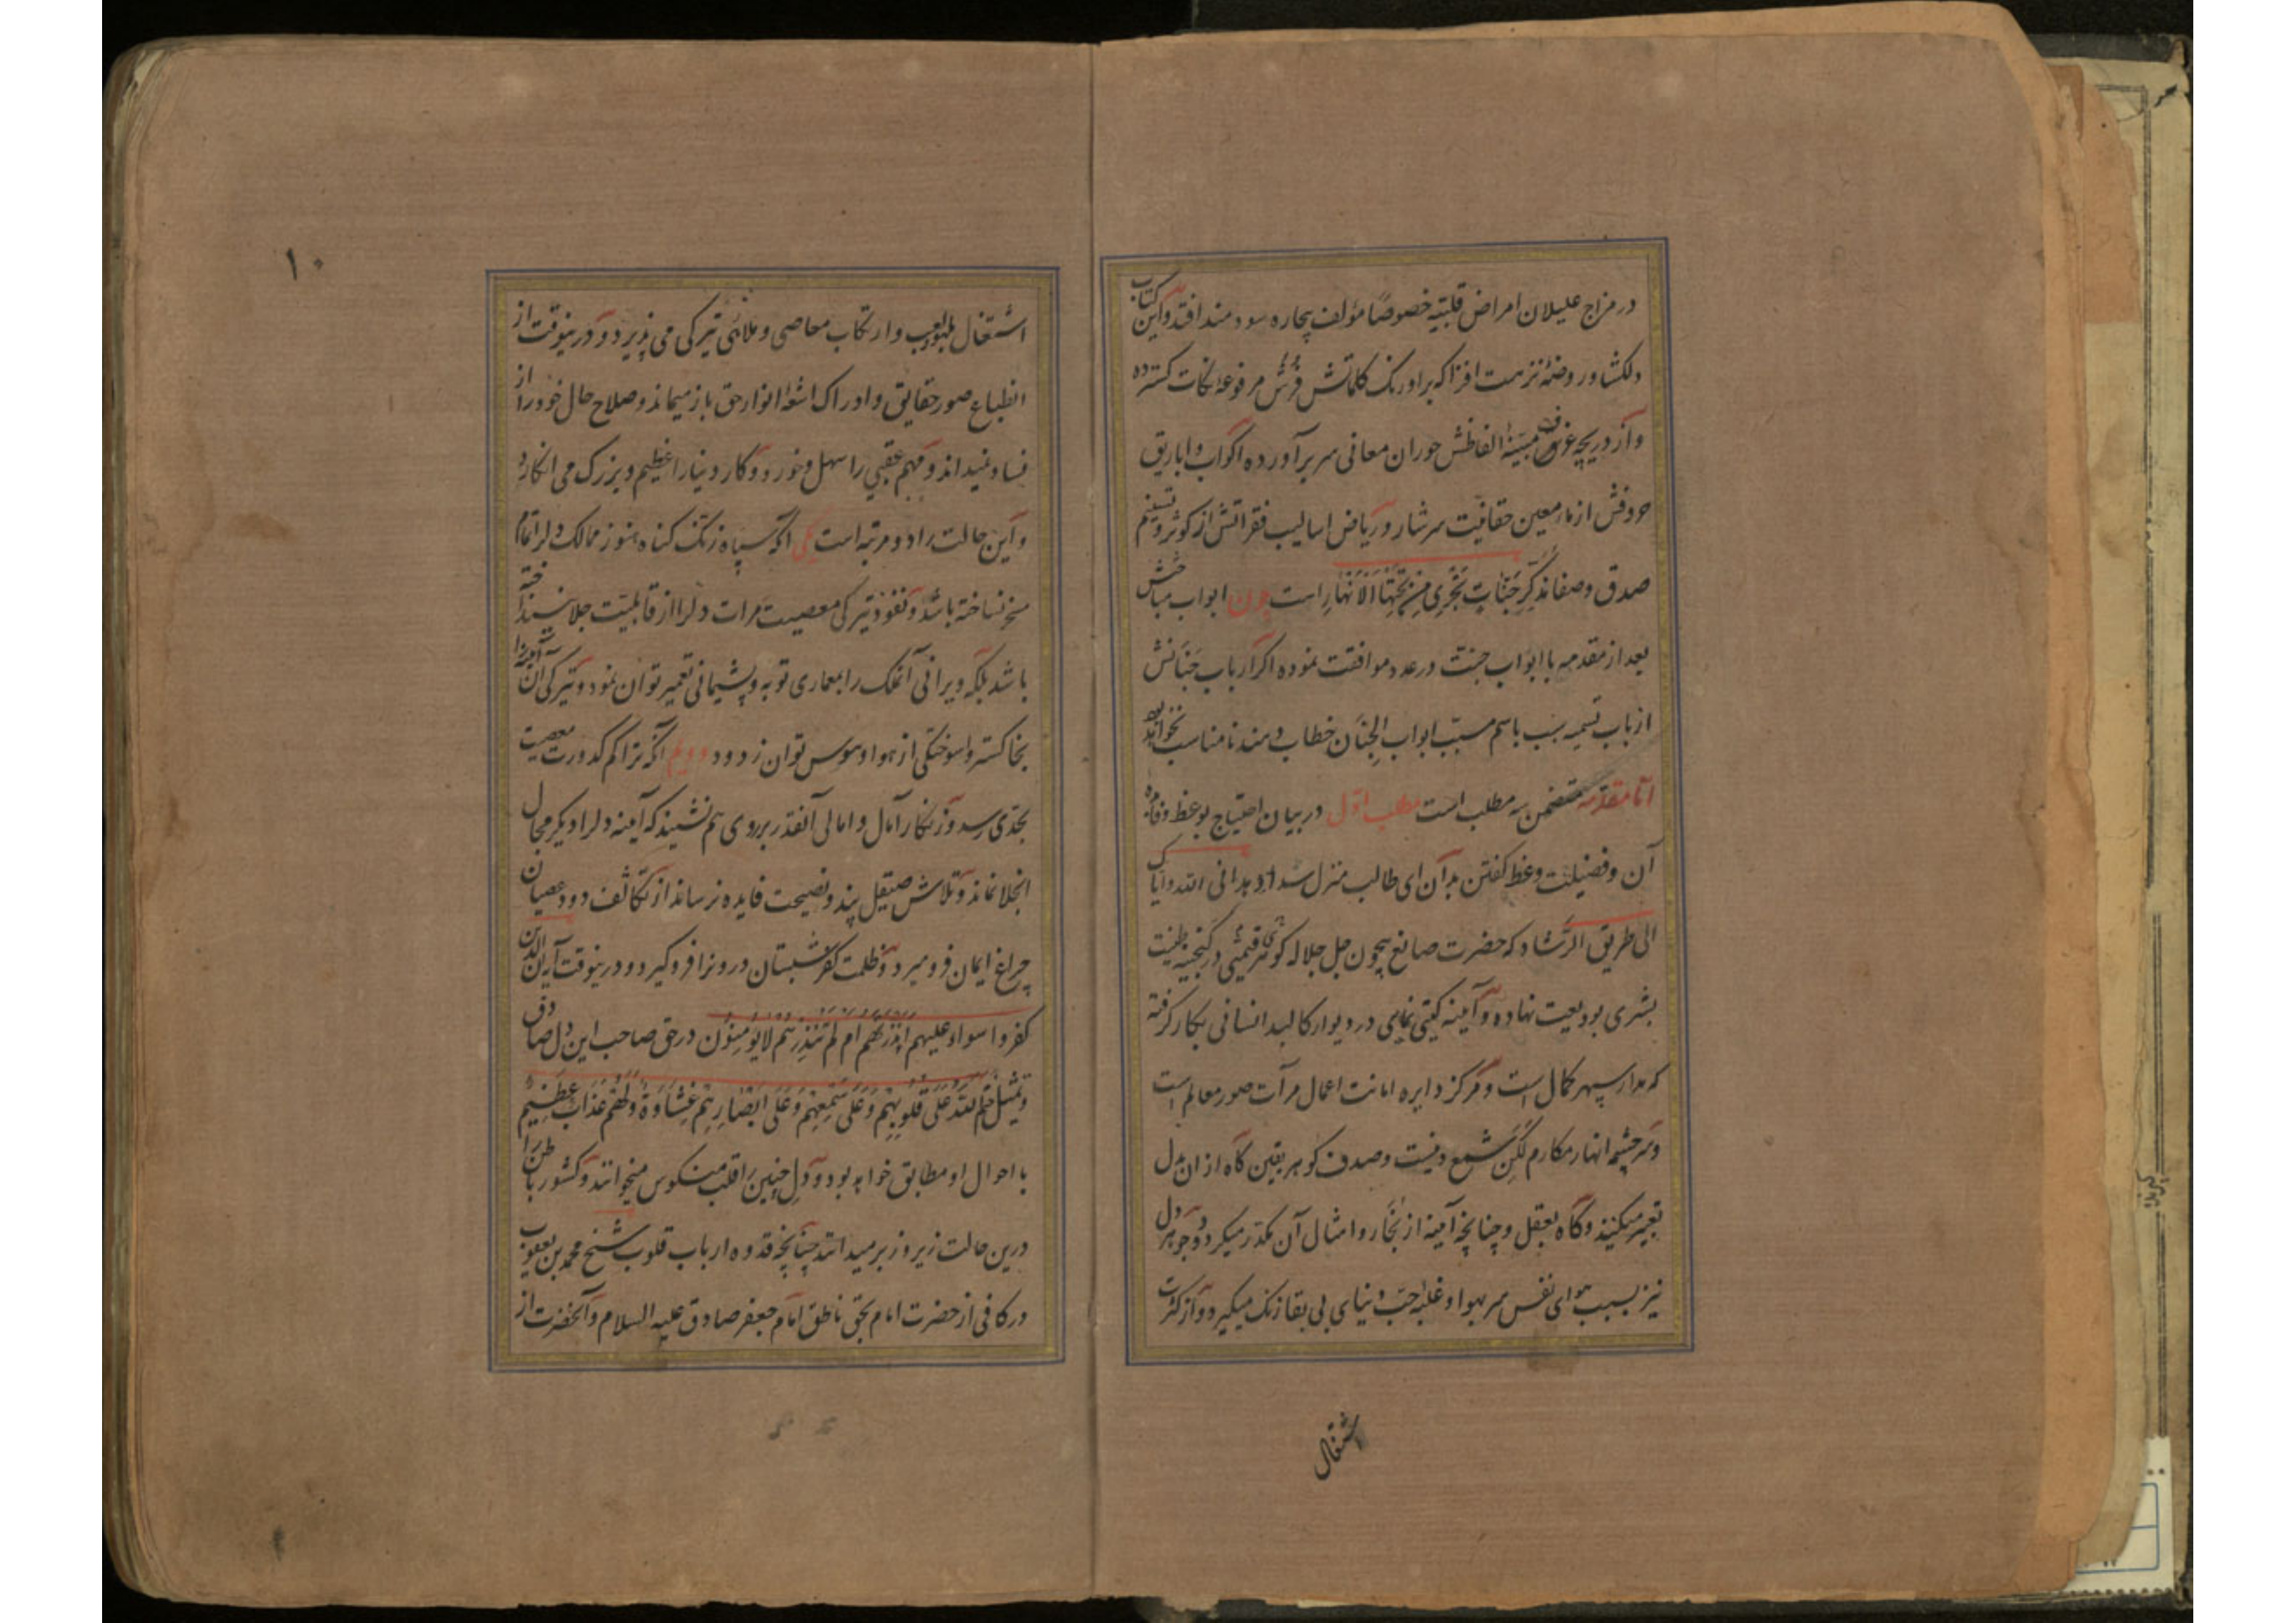 در مزاج علیلان امراض قلبیّه خصوصًا مؤلف بیچاره سودمند افتد و این کتاب
دلکشا و روضهٔ نزهت افزا که بر اورنک کلماتش فُرُش مرفوعهٔ نکات کسترده
و از دریچه غرف مبنیّهٔ الفاظش حوران معانی سر برآورده اکواب و اباریق
حروفش از ماء معین حقانیّت سرشار و ریاض اسالیب فقراتش از کوثر و تسنیم
صدق و صفا تذکّر جَنّاتٍ تَجْرِی مِنْ تَحْتِهَا الْاَنْهَارِ است چون ابواب مباحثش
بعد از مقدمه با ابواب جنّت در عدد موافقت نموده اکر ارباب جَنَانش
از باب تسمیه سبب باسم مسبّب ابواب الجِنَان خطاب دهند نامناسب نخواهد بود
امّا مقدّمه متضمن سه مطلب است مطلب اوّل در بیان احتیاج بوعظ و فایده
آن و فضیلت وعظ کفتن بدان ای طالب منزل سداد هدانی الله و ایاک
الی طریق الرّشاد که حضرت صانع بیچون جل جلاله کوهر قیمتی در کنجینه طینت
بشری بودیعت نهاده و آیینه کیتی نمایی در دیوار کالبد انسانی بکار رفته
که مدار سپهر کمال است و مرکز دایره امانت اعمال مرآت صور معالم است
و سرچشمه انهار مکارم لکن شمع دینست و صدف کوهر یقین کاه از ان بدل
تعبیر میکنند و کاه بعقل و چنانچه آیینه از بخار و امثال آن مکدّر میکردد و جوهر دل
نیز بسبب هوای نفس سر بهوا و غلبه حبّ دنیای بی بقا زنک میکیرد و از کثرت
اشتغال
۱۰
اشتغال بلهو و لعب و ارتکاب معاصی و ملاهی تیرکی می پذیرد و درینوقت از
انطباع صور حقایق و ادراک اشعهٔ انوار حق باز میماند و صلاح حال خود را از
فساد نمیداند و مهم عقبی را سهل و خورد و کار دنیا را عظیم و بزرک می انکارد
و این حالت را دو مرتبه است یکی آنکه سپاه زنک کناه هنوز ممالک دلرا تمام
مسخر نساخته باشد و نفوذ تیرکی معصیت مرات دلرا از قابلیّت جلا نینداخته
باشد بلکه ویرانی آنملک را بمعماری توبه و پشیمانی تعمیر توان نمود و تیرکی آن آیینه را
بخاکستر واسوختکی از هوا و هوس توان زدود دویم آنکه تراکم کدورت معصیت
بحدّی رسد و زنکار آمال و امانی آنقدر بر روی هم نشیند که آیینه دلرا دیکر مجال
انجلا نماند و تلاش صیقل پند و نصیحت فایده نرساند از تکاثف دود عصیان
چراغ ایمان فرو میرد و ظلمت کفر شبستان درونرا فرو کیرد و درینوقت آیه ان الذین
کفروا سواء علیهم ءَاَنْذَرْتَهُمْ اَم لَمْ تُنْذِرْهُمْ لایُؤْمِنُوْن در حق صاحب این دل صادق
و تمثیل خَتَمَ اللهُ عَلَی قُلُوْبِهِمْ وَعَلَی سَمْعِهِمْ وَعَلَی اَبْصَارِهِمْ غِشَاوَةٌ وَلَهُمْ عَذَابٌ عَظِیْمٌ
با احوال او مطابق خواهد بود و دل چنین را قلب منکوس میخوانند و کشور باطن را
درین حالت زیر و زبر میدانند چنانچه قدوه ارباب قلوب شیخ محمد بن یعقوب
در کافی از حضرت امام بحق ناطق امام جعفر صادق علیه السلام و آنحضرت از